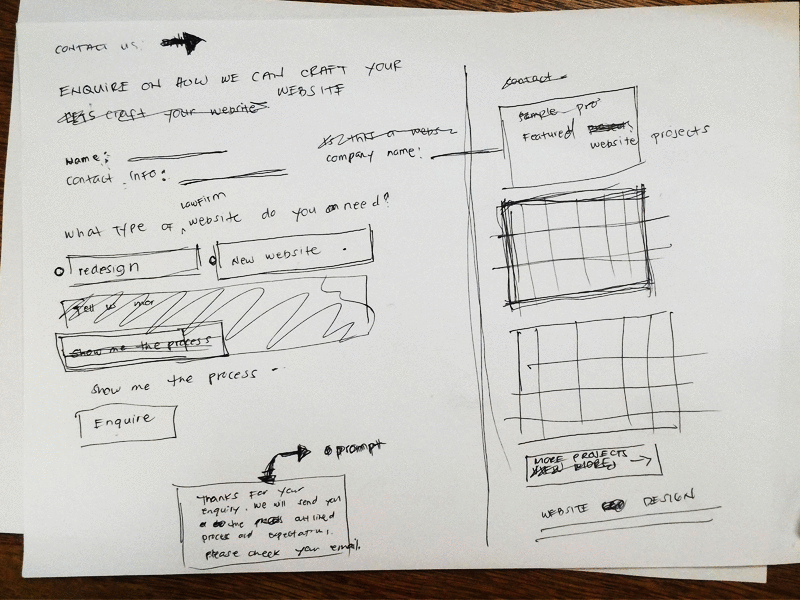 CONTACT US:
ENQUIRE ON HOW WE CAN CRAFT YOUR
WEBSITE
LETS craft your website
Name:
company name:
contact info:
Lawfirm
what type of website do you need?
redesign
New website
Tell us more
Show me the process
show me the process
Enquire
prompt
Thanks for your
Enquiry. We will send you
the outlined
process and expectations.
please check your email.
contact
sample pro
Featured website projects
MORE PROJECTS
VIEW MORE
WEBSITE DESIGN